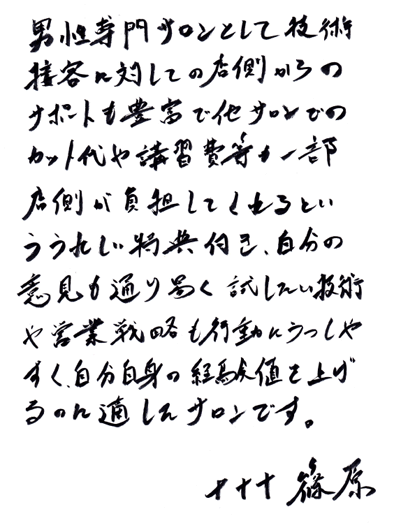 男性専門サロンとして技術
接客に対しての店側からの
サポートも豊富で他サロンでの
カット代や講習費等も一部
店側が負担してくれるとい
ううれしい特典付き、自分の
意見も通り易く試したい技術
や営業戦略も行動にうつしや
すく、自分自身の経験値を上げ
るのに適したサロンです。
ナナナ 篠原